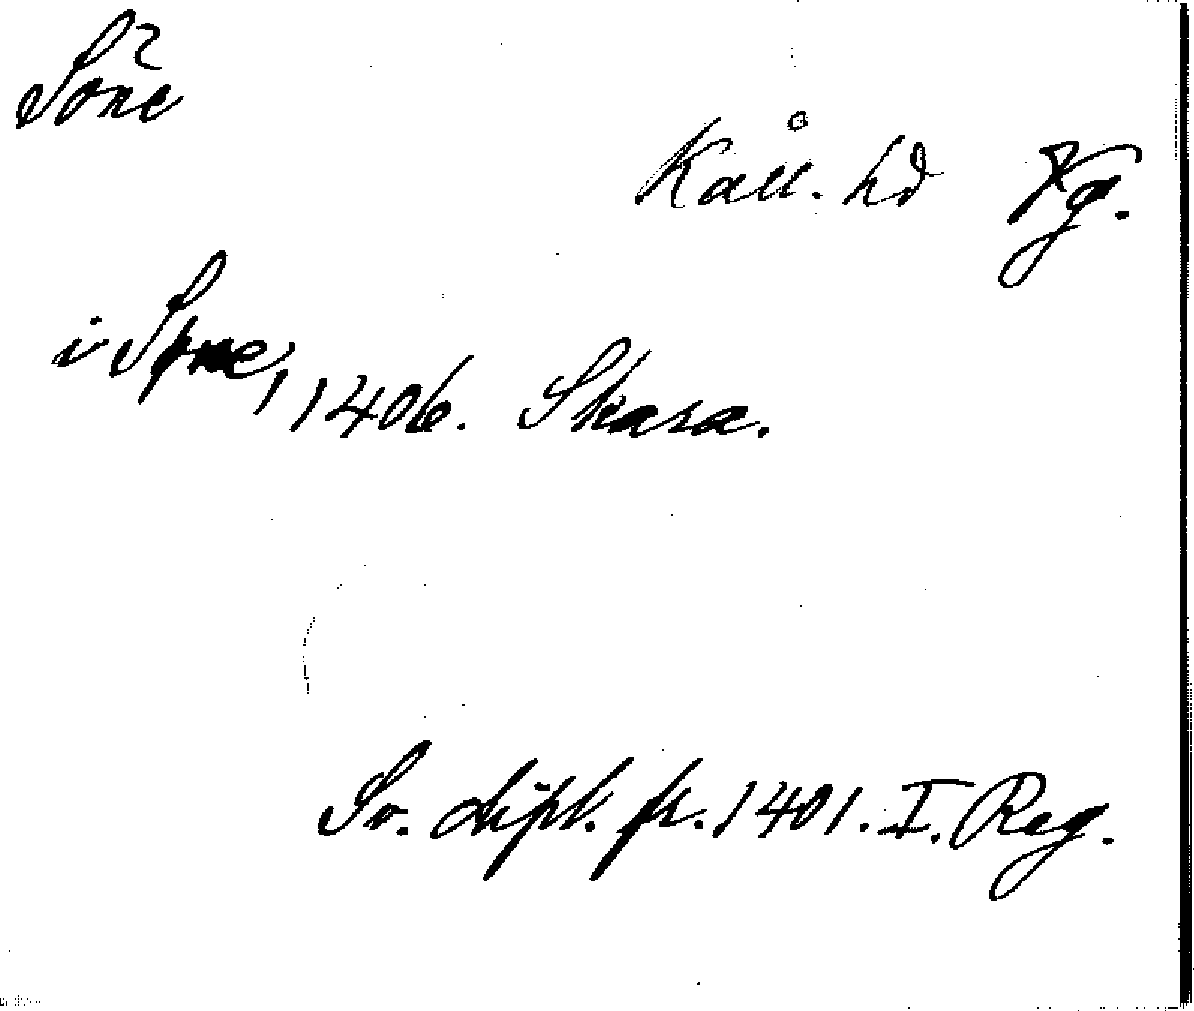 Söne
Kåll. hd Vg.
i Spne, 1406. Skara.
Sv. dipl. fr. 1401. I. Reg.